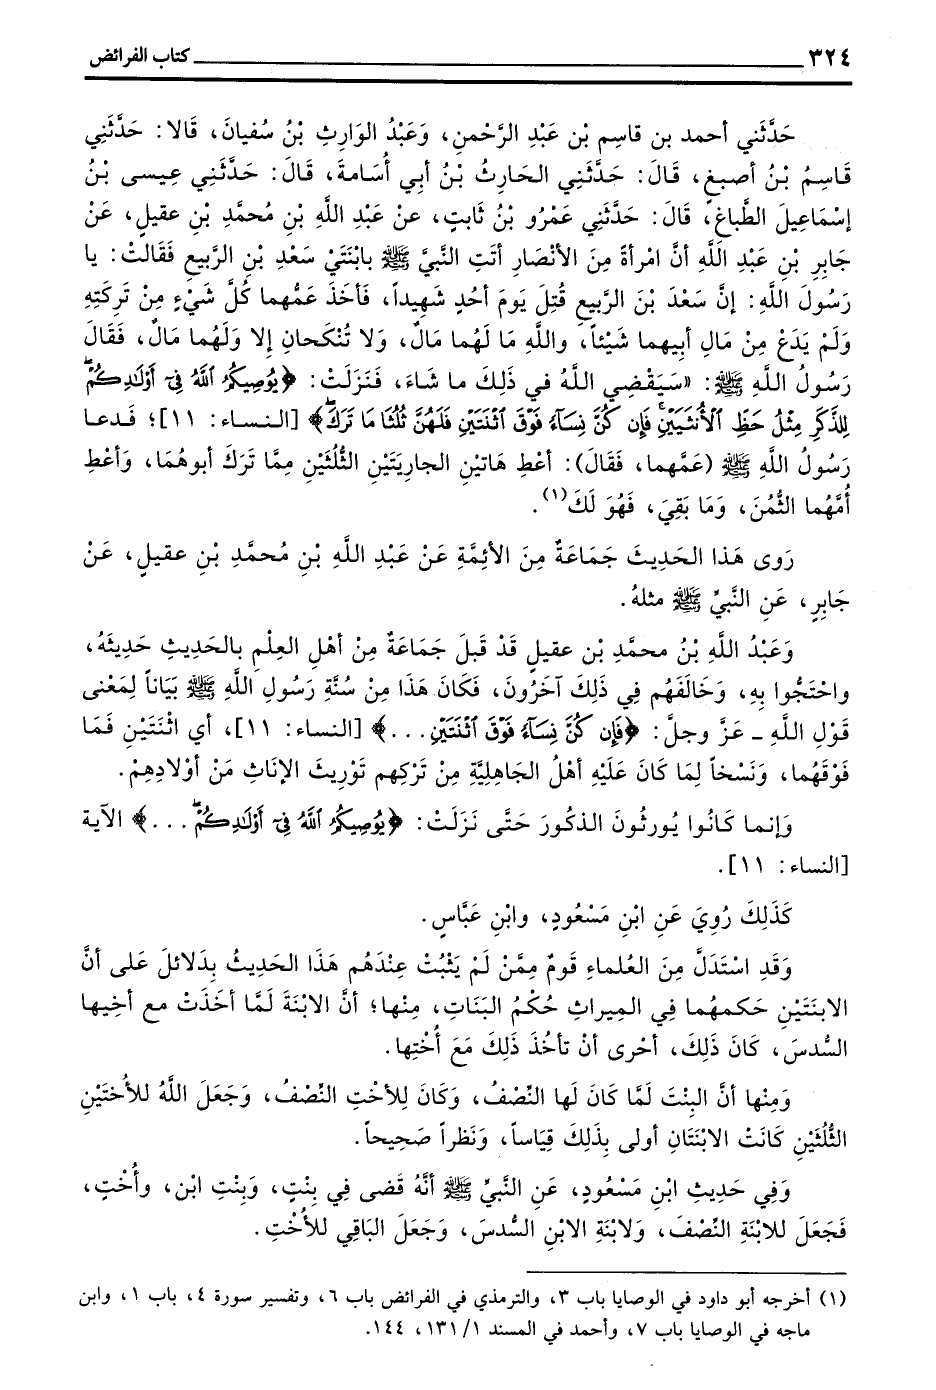 ٣٢٤ كتاب الفرائض
حَدَّثَني أحمد بن قاسِم بْن عَبْدِ الرَّحْمنِ، وَعَبْدُ الوَارِثِ بْنُ سُفيانَ، قَالا: حَدَّثَنِي
قَاسِمُ بْنُ أصبغٍ، قَالَ: حَدَّثَنِي الحَارِثُ بْنُ أبي أُسَامةَ، قَالَ: حَدَّثَنِي عِيسى بْنُ
إسْمَاعِيلَ الطَّباعِ، قَالَ: حَدَّثَنِي عَمْرُو بْنُ ثَابتٍ، عنْ عَبْدِ اللَّهِ بْنِ مُحمَّدِ بْنِ عقيلٍ، عَنْ
جَابِرِ بْنِ عَبْدِ اللَّهِ أنَّ امْرأةً مِنَ الأنْصَارِ أتَتِ النَّبيَّ ﷺ بابْنَتَيْ سَعْدِ بْنِ الرَّبيعِ فَقَالتْ: يا
رَسُولَ اللَّهِ: إنَّ سَعْدَ بْنَ الرَّبيعِ قُتِلَ يَومَ أُحدٍ شَهِيداً، فَأخَذَ عَمُّهما كُلَّ شَيْءٍ مِنْ تَرِكَتِهِ
وَلَمْ يَدَعْ مِنْ مَالِ أبيهما شَيْئاً، واللَّهِ مَا لَهُما مَالٌ، وَلا تُنْكَحانِ إلا وَلَهُما مَالٌ، فَقَالَ
رَسُولُ اللَّهِ ﷺ: «سَيَقْضِي اللَّهُ في ذَلِكَ ما شَاءَ، فَنَزَلَتْ: ﴿يُوصِيكُمُ ٱللَّهُ فِىٓ أَوْلَٰدِكُمْ ۖ
لِلذَّكَرِ مِثْلُ حَظِّ ٱلْأُنثَيَيْنِ ۚ فَإِن كُنَّ نِسَآءً فَوْقَ ٱثْنَتَيْنِ فَلَهُنَّ ثُلُثَا مَا تَرَكَ ۖ﴾ [النساء: ١١]؛ فَدعا
رَسُولُ اللَّهِ ﷺ (عَمَّهما، فَقَالَ): أعْطِ هَاتيْنِ الجاريَتَيْنِ الثُّلُثَيْنِ مِمَّا تَرَكَ أبوهُمَا، وَأعْطِ
أُمَّهُما الثُّمُنَ، وَمَا بَقِيَ، فَهُوَ لَكَ(١).
رَوى هَذا الحَديثَ جَمَاعَةٌ مِنَ الأئِمَّةِ عَنْ عَبْدِ اللَّهِ بْنِ مُحمَّدِ بْنِ عقيلٍ، عَنْ
جَابِرٍ، عَنِ النَّبيِّ ﷺ مثلهُ.
وَعَبْدُ اللَّهِ بْنُ محمَّدِ بْنِ عقيلٍ قَدْ قبلَ جَمَاعَةٌ مِنْ أهْلِ العِلْمِ بالحَدِيثِ حَدِيثَهُ،
واحْتَجُّوا بِهِ، وَخَالَفَهُم فِي ذَلِكَ آخَرُونَ، فَكَانَ هَذَا مِنْ سُنَّةِ رَسُولِ اللَّهِ ﷺ بَيَاناً لِمَعْنى
قَوْلِ اللَّهِ ـ عَزَّ وجلَّ: ﴿فَإِن كُنَّ نِسَآءً فَوْقَ ٱثْنَتَيْنِ . . .﴾ [النساء: ١١]، أي اثْنَتَيْنِ فَمَا
فَوْقَهُما، وَنَسْخاً لِمَا كَانَ عَلَيْهِ أهْلُ الجَاهِليَّةِ مِنْ تَرْكِهِم تَوْرِيثَ الإنَاثِ مَنْ أوْلادِهِمْ.
وَإنما كَانُوا يُورثُونَ الذكُورَ حَتَّى نَزَلَتْ: ﴿يُوصِيكُمُ ٱللَّهُ فِىٓ أَوْلَٰدِكُمْ ۖ . . .﴾ الآية
[النساء: ١١].
كَذَلِكَ رُوِيَ عَنِ ابْنِ مَسْعُودٍ، وابْنِ عَبَّاسٍ.
وَقَدِ اسْتَدَلَّ مِنَ العُلماءِ قَومٌ مِمَّنْ لَمْ يَثْبُتْ عِنْدَهُم هَذَا الحَدِيثُ بِدَلائلَ عَلى أنَّ
الابنَتَيْنِ حَكمهُما فِي المِيراثِ حُكْمُ البَنَاتِ، مِنْها؛ أنَّ الابْنَةَ لَمَّا أخَذَتْ مع أخِيها
السُّدسَ، كَانَ ذَلِكَ، أحْرى أنْ تأخُذَ ذَلِكَ مَعَ أُخْتِها.
وَمِنْها أنَّ البِنْتَ لَمَّا كَانَ لَها النِّصْفُ، وَكَانَ لِلأخْتِ النِّصْفُ، وَجَعَلَ اللَّهُ للأختَيْنِ
الثُّلُثَيْنِ كَانَتْ الابْنَتَانِ أولى بِذَلِكَ قِيَاساً، وَنَظراً صَحِيحاً.
وَفِي حَدِيثِ ابْنِ مَسْعُودٍ، عَنِ النَّبيِّ ﷺ أنَّهُ قَضى في بِنْتٍ، وَبِنْتِ ابْنٍ، وأُخْتٍ،
فَجَعَلَ للابْنَةِ النِّصْفَ، وَلابْنَةِ الابْنِ السُّدسَ، وَجَعَلَ البَاقِي للأُخْتِ.
(١) أخرجه أبو داود في الوصايا باب ٣، والترمذي في الفرائض باب ٦، وتفسير سورة ٤، باب ١، وابن
ماجه في الوصايا باب ٧، وأحمد في المسند ١/ ١٣١، ١٤٤.